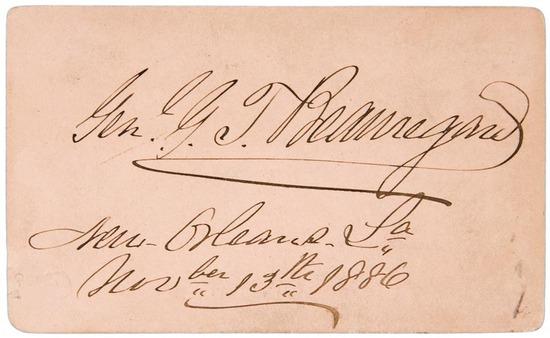 Genl. G. T. Beauregard
New-Orleans. La
Novber 13th 1886